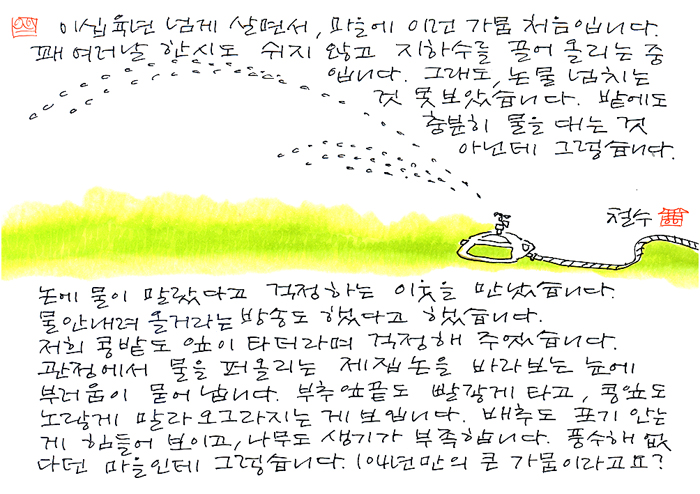 이십육년 넘게 살면서, 마을에 이런 가뭄 처음입니다.
꽤 여러날 한시도 쉬지 않고 지하수를 끌어 올리는 중
입니다. 그래도, 논물 넘치는
것 못 보았습니다. 밭에도
충분히 물을 대는 것
아닌데 그렇습니다.
철수
논에 물이 말랐다고 걱정하는 이웃을 만났습니다.
물안내려 올거라는 방송도 했다고 했습니다.
저희 콩밭도 잎이 타더라며 걱정해 주었습니다.
관정에서 물을 퍼올리는 제집 논을 바라보는 눈에
부러움이 묻어 납니다. 부추잎끝도 빨갛게 타고, 콩잎도
노랗게 말라 오그라지는 게 보입니다. 배추도 포기 안는
게 힘들어 보이고, 나무도 생기가 부족합니다. 풍수해 없
다던 마을인데 그렇습니다. 104년만의 큰 가뭄이라고요?